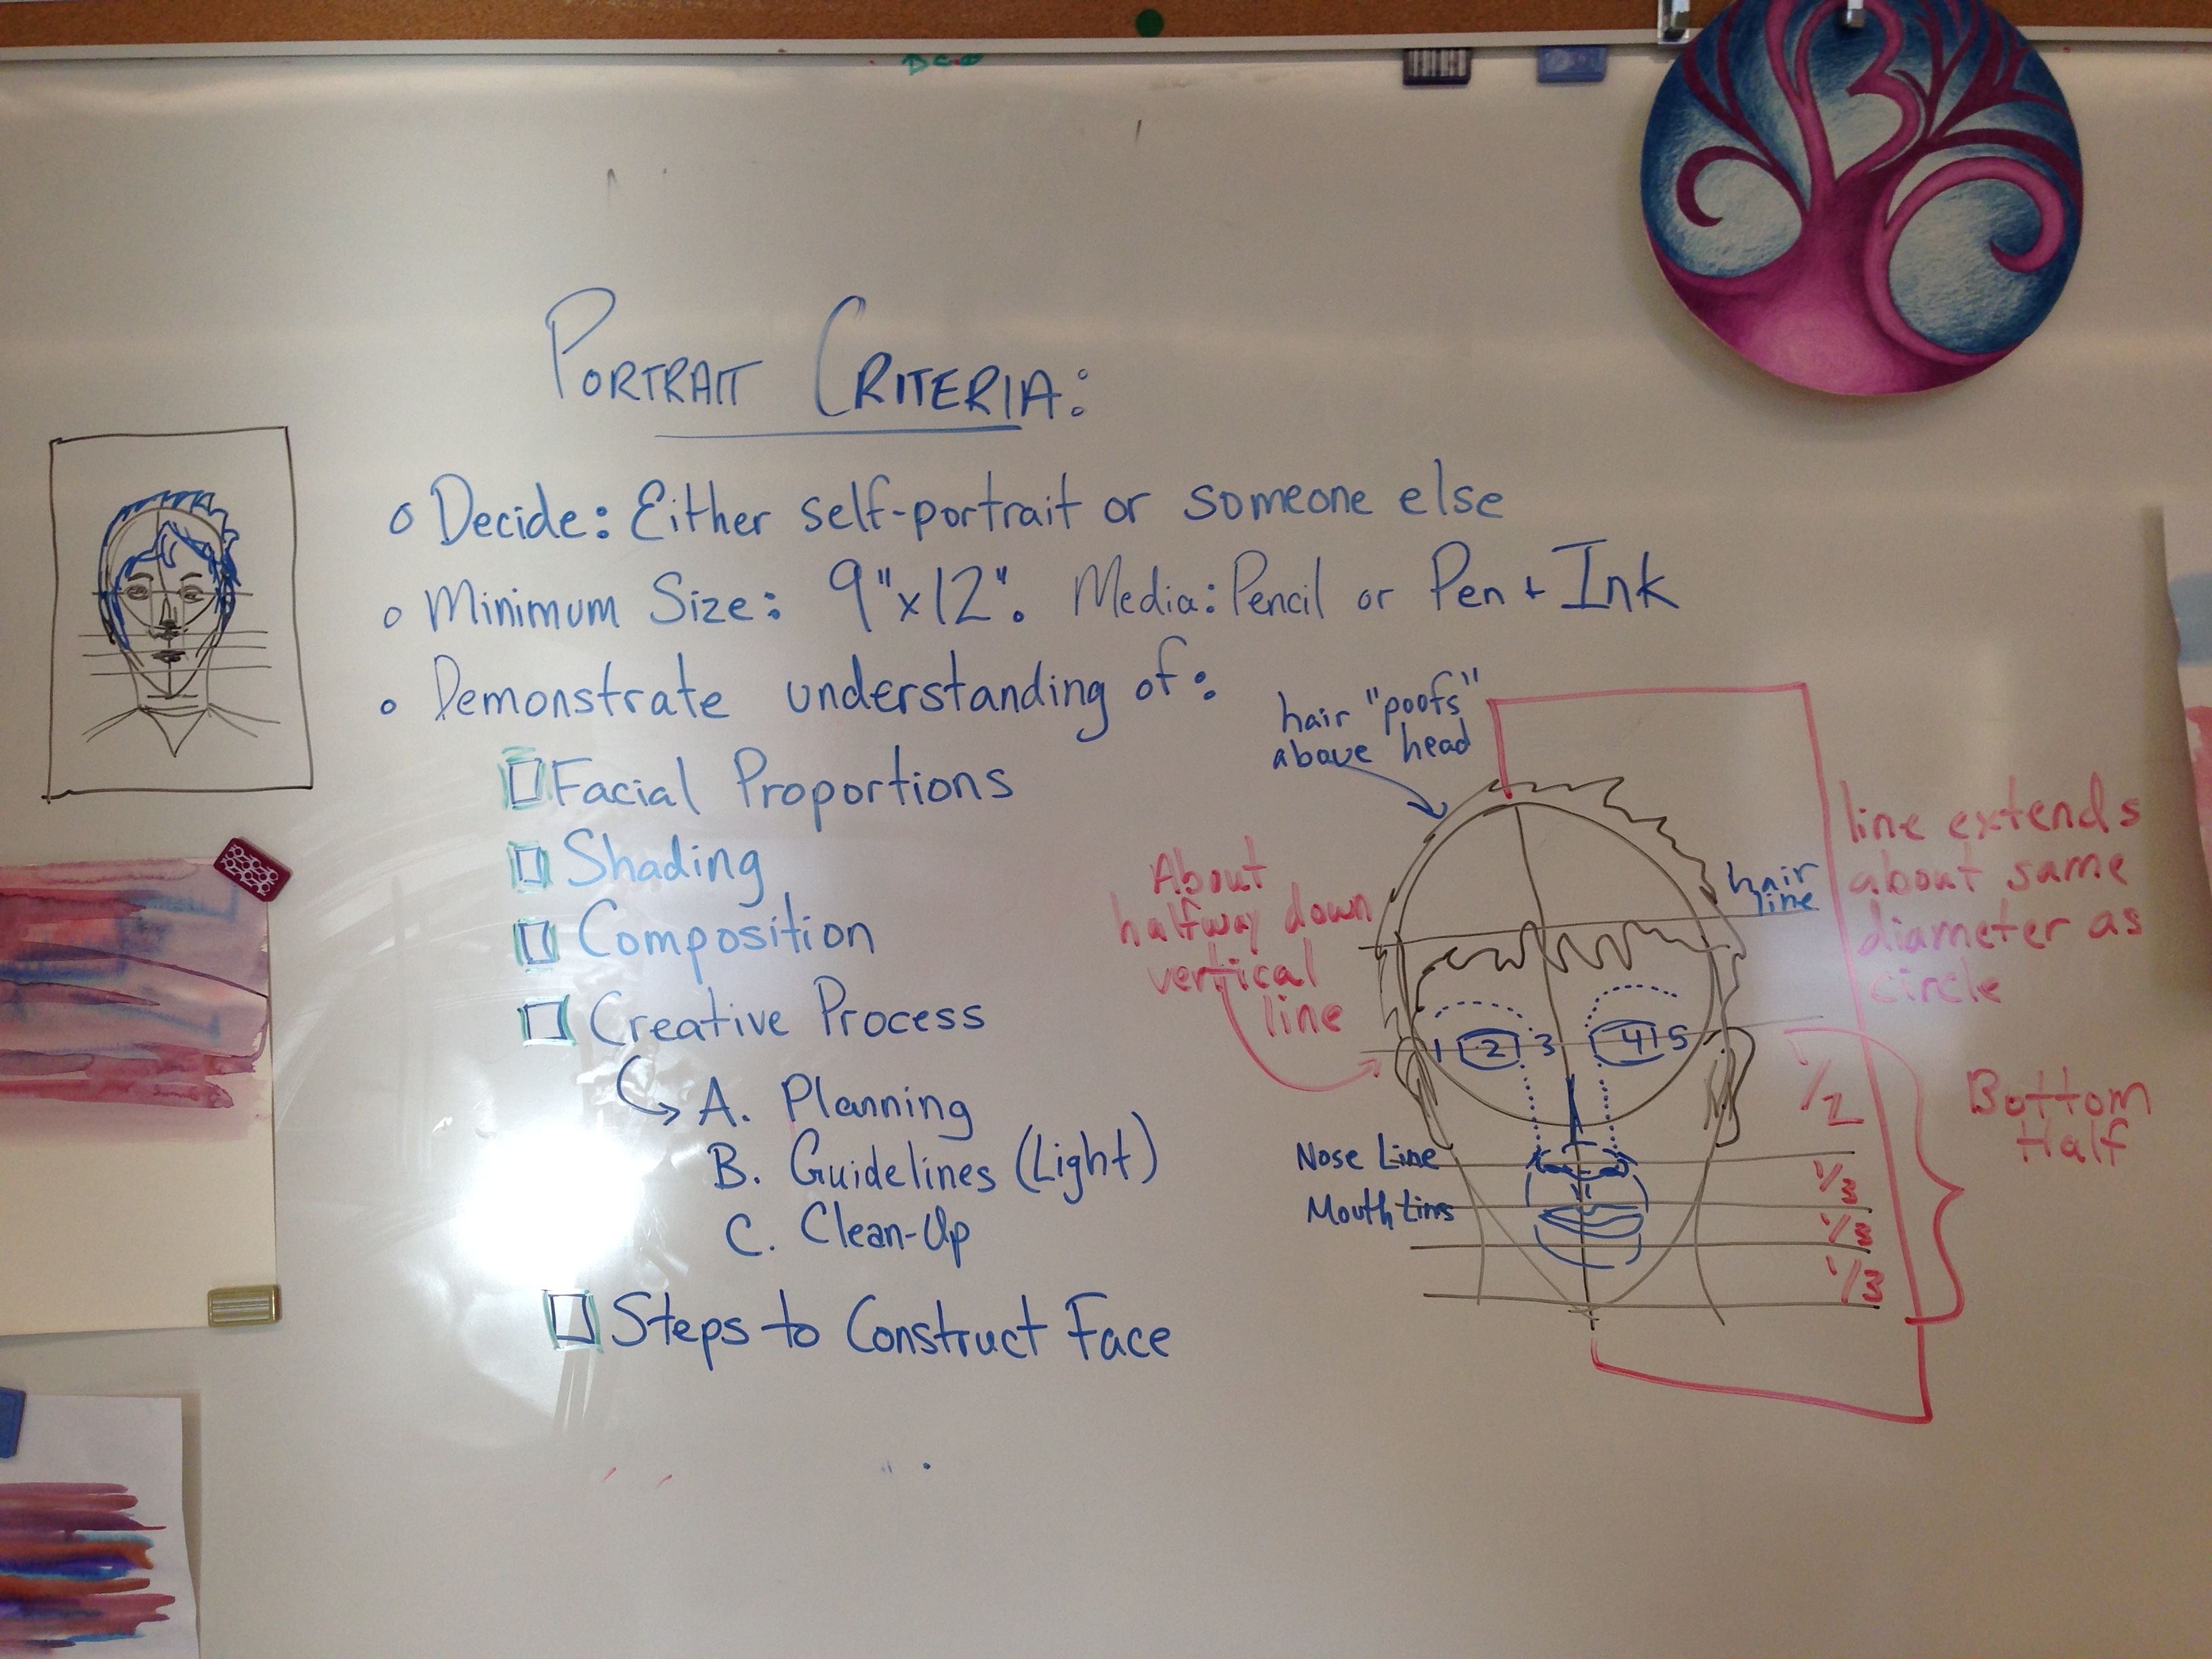 PORTRAIT CRITERIA:
Decide: Either self-portrait or someone else
Minimum Size: 9"x12". Media: Pencil or Pen + Ink
Demonstrate understanding of:
Facial Proportions
Shading
Composition
Creative Process
A. Planning
B. Guidelines (Light)
C. Clean-Up
Steps to Construct Face
hair "poofs"
above head
About
halfway down
vertical
line
hair
line
line extends
about same
diameter as
circle
1 2 3 4 5
Nose Line
Mouth Line
1/2
1/3
1/3
1/3
Bottom
Half